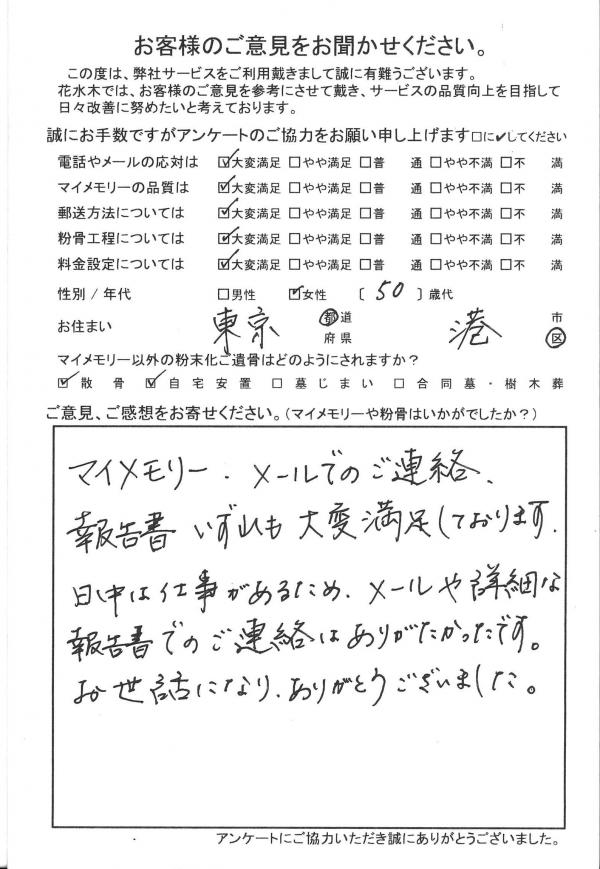 お客様のご意見をお聞かせください。
この度は、弊社サービスをご利用戴きまして誠に有難うございます。
花水木では、お客様のご意見を参考にさせて戴き、サービスの品質向上を目指して
日々改善に努めたいと考えております。
誠にお手数ですがアンケートのご協力をお願い申し上げます□に✓してください
電話やメールの応対は ☑大変満足 □やや満足 □普 通 □やや不満 □不 満
マイメモリーの品質は ☑大変満足 □やや満足 □普 通 □やや不満 □不 満
郵送方法については ☑大変満足 □やや満足 □普 通 □やや不満 □不 満
粉骨工程については ☑大変満足 □やや満足 □普 通 □やや不満 □不 満
料金設定については ☑大変満足 □やや満足 □普 通 □やや不満 □不 満
性別 / 年代 □男性 ☑女性 〔 50 〕歳代
お住まい 東京 都道府県 港 市区
マイメモリー以外の粉末化ご遺骨はどのようにされますか？
☑散骨 ☑自宅安置 □墓じまい □合同墓・樹木葬
ご意見、ご感想をお寄せください。(マイメモリーや粉骨はいかがでしたか？)
マイメモリー、メールでのご連絡、
報告書 いずれも 大変満足しております。
日中は仕事があるため、メールや詳細な
報告書でのご連絡はありがたかったです。
お世話になり、ありがとうございました。
アンケートにご協力いただき誠にありがとうございました。